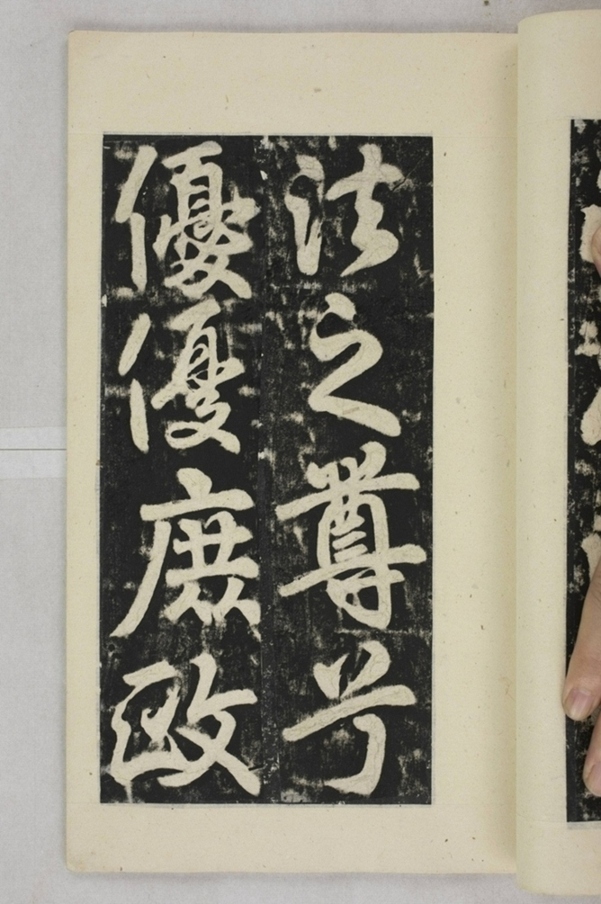 法之尊号
優優庶政